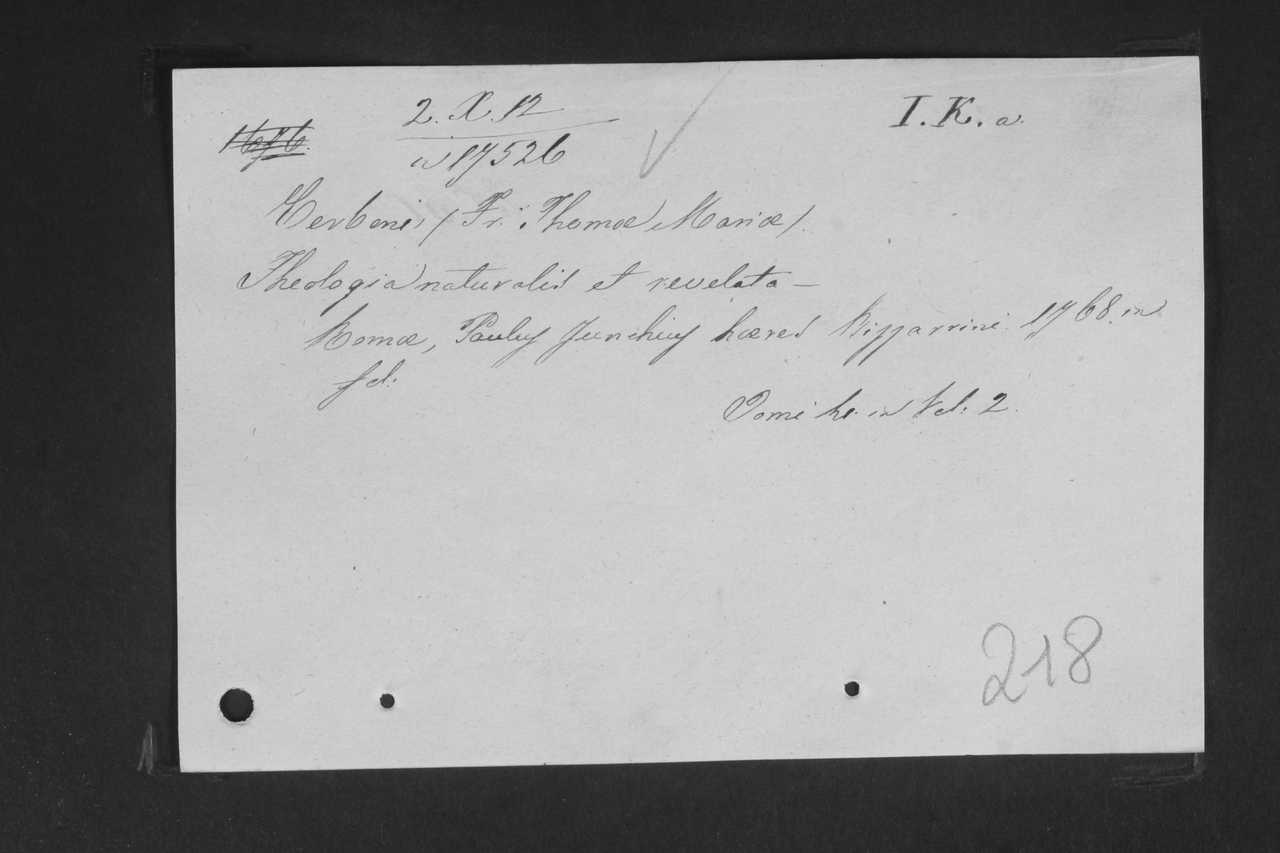 2. X. 12
I. K. a.
1676.
w 17526
Cerboni, (Fr. Thomæ Mariæ).
Theologia naturalis et revelata —
Romæ, Paulus Junchius hæres Bizzarrini. 1768. in
fol:
Tomi in Vol. 2.
218